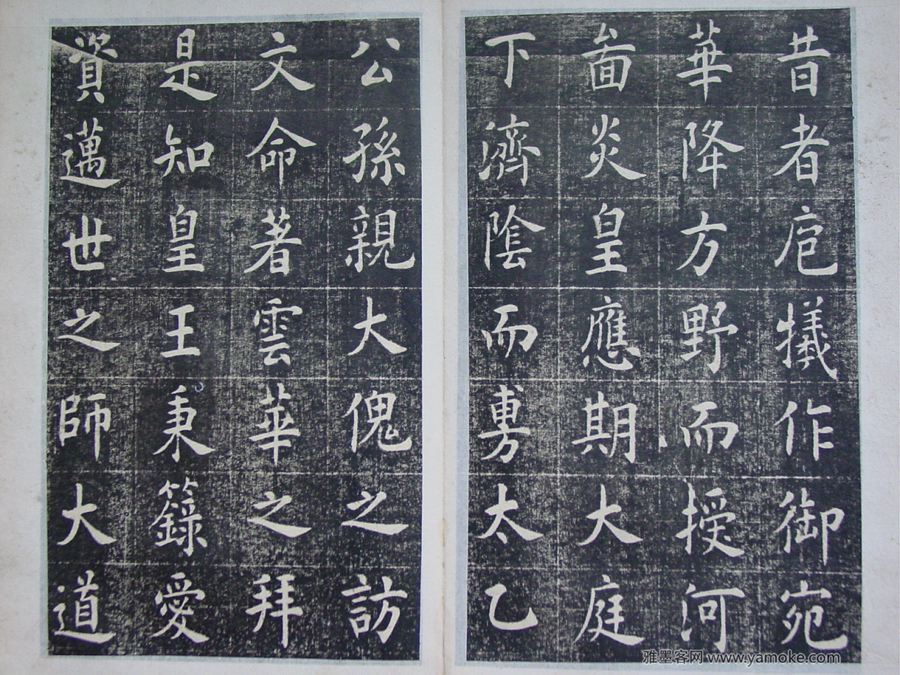 昔者庖犧作御宛
華降方野而授河
啚炎皇應期大庭
下濟陰而旉太乙
公孫親大傀之訪
文命著雲華之拜
是知皇王秉籙愛
資邁世之師大道
雅墨客网 www.yamoke.com